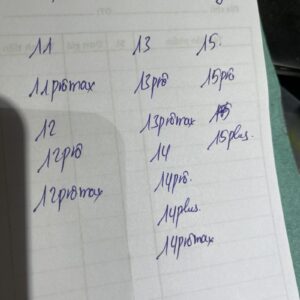 11
11prômax
12
12prô
12prômax
13
13prô
13prômax
14
14prô.
14plus.
14prômax
15.
15prô
15plus.